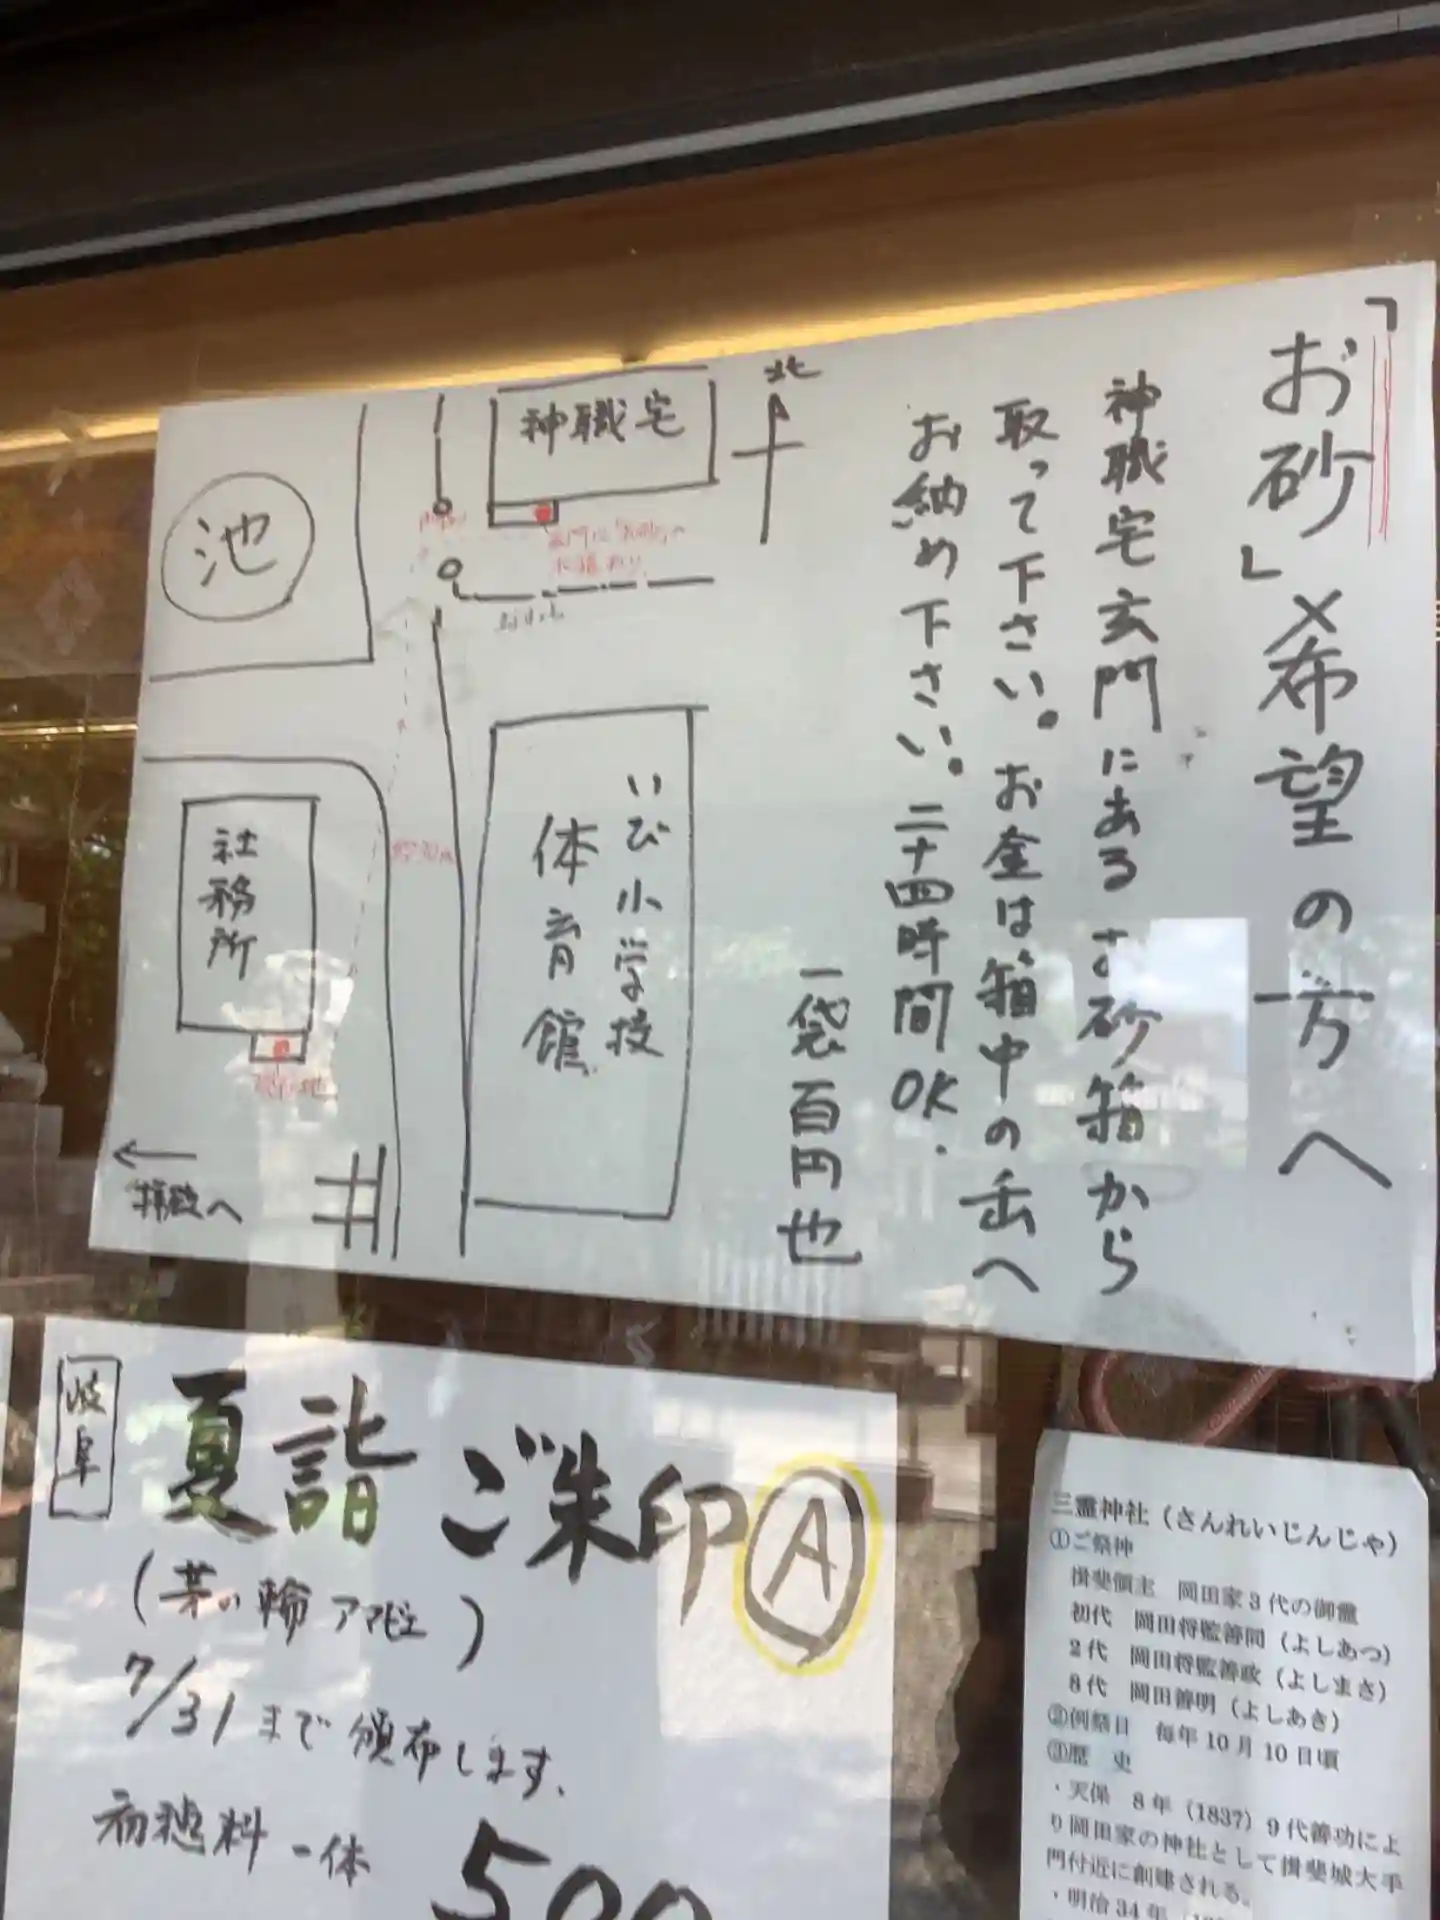 「お砂」希望の方へ
神職宅玄関にあるお砂箱から
取って下さい。お金は箱中の缶へ
お納め下さい。二十四時間OK.
一袋百円也
北
神職宅
池
いび小学校
体育館
社務所
拝殿へ
岐阜
夏詣ご朱印Ⓐ
(茅の輪アマビエ)
7/31まで頒布します.
初穂料一体
500
三霊神社(さんれいじんじゃ)
①ご祭神
揖斐領主 岡田家3代の御霊
初代 岡田将監善同(よしあつ)
2代 岡田将監善政(よしまさ)
8代 岡田善明(よしあき)
②例祭日 毎年10月10日頃
③歴 史
・天保 8年(1837)9代善功によ
り岡田家の神社として揖斐城大手
門付近に創建される。
・明治34年